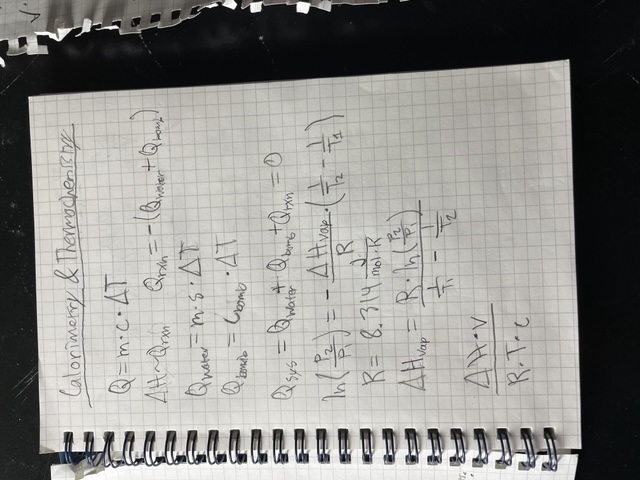 Calorimetry & Thermochemistry
Q = m · c · ΔT
ΔH ~ Qrxn Qrxn = -(Qwater + Qbomb)
Qwater = m · s · ΔT
Qbomb = Cbomb · ΔT
Qsys = Qwater + Qbomb + Qrxn = 0
ln(P2/P1) = - ΔHvap/R · (1/T2 - 1/T1)
R = 8.314 J/mol·K
ΔHvap = R · ln(P2/P1) / (1/T1 - 1/T2)
ΔH · v
R · T · c